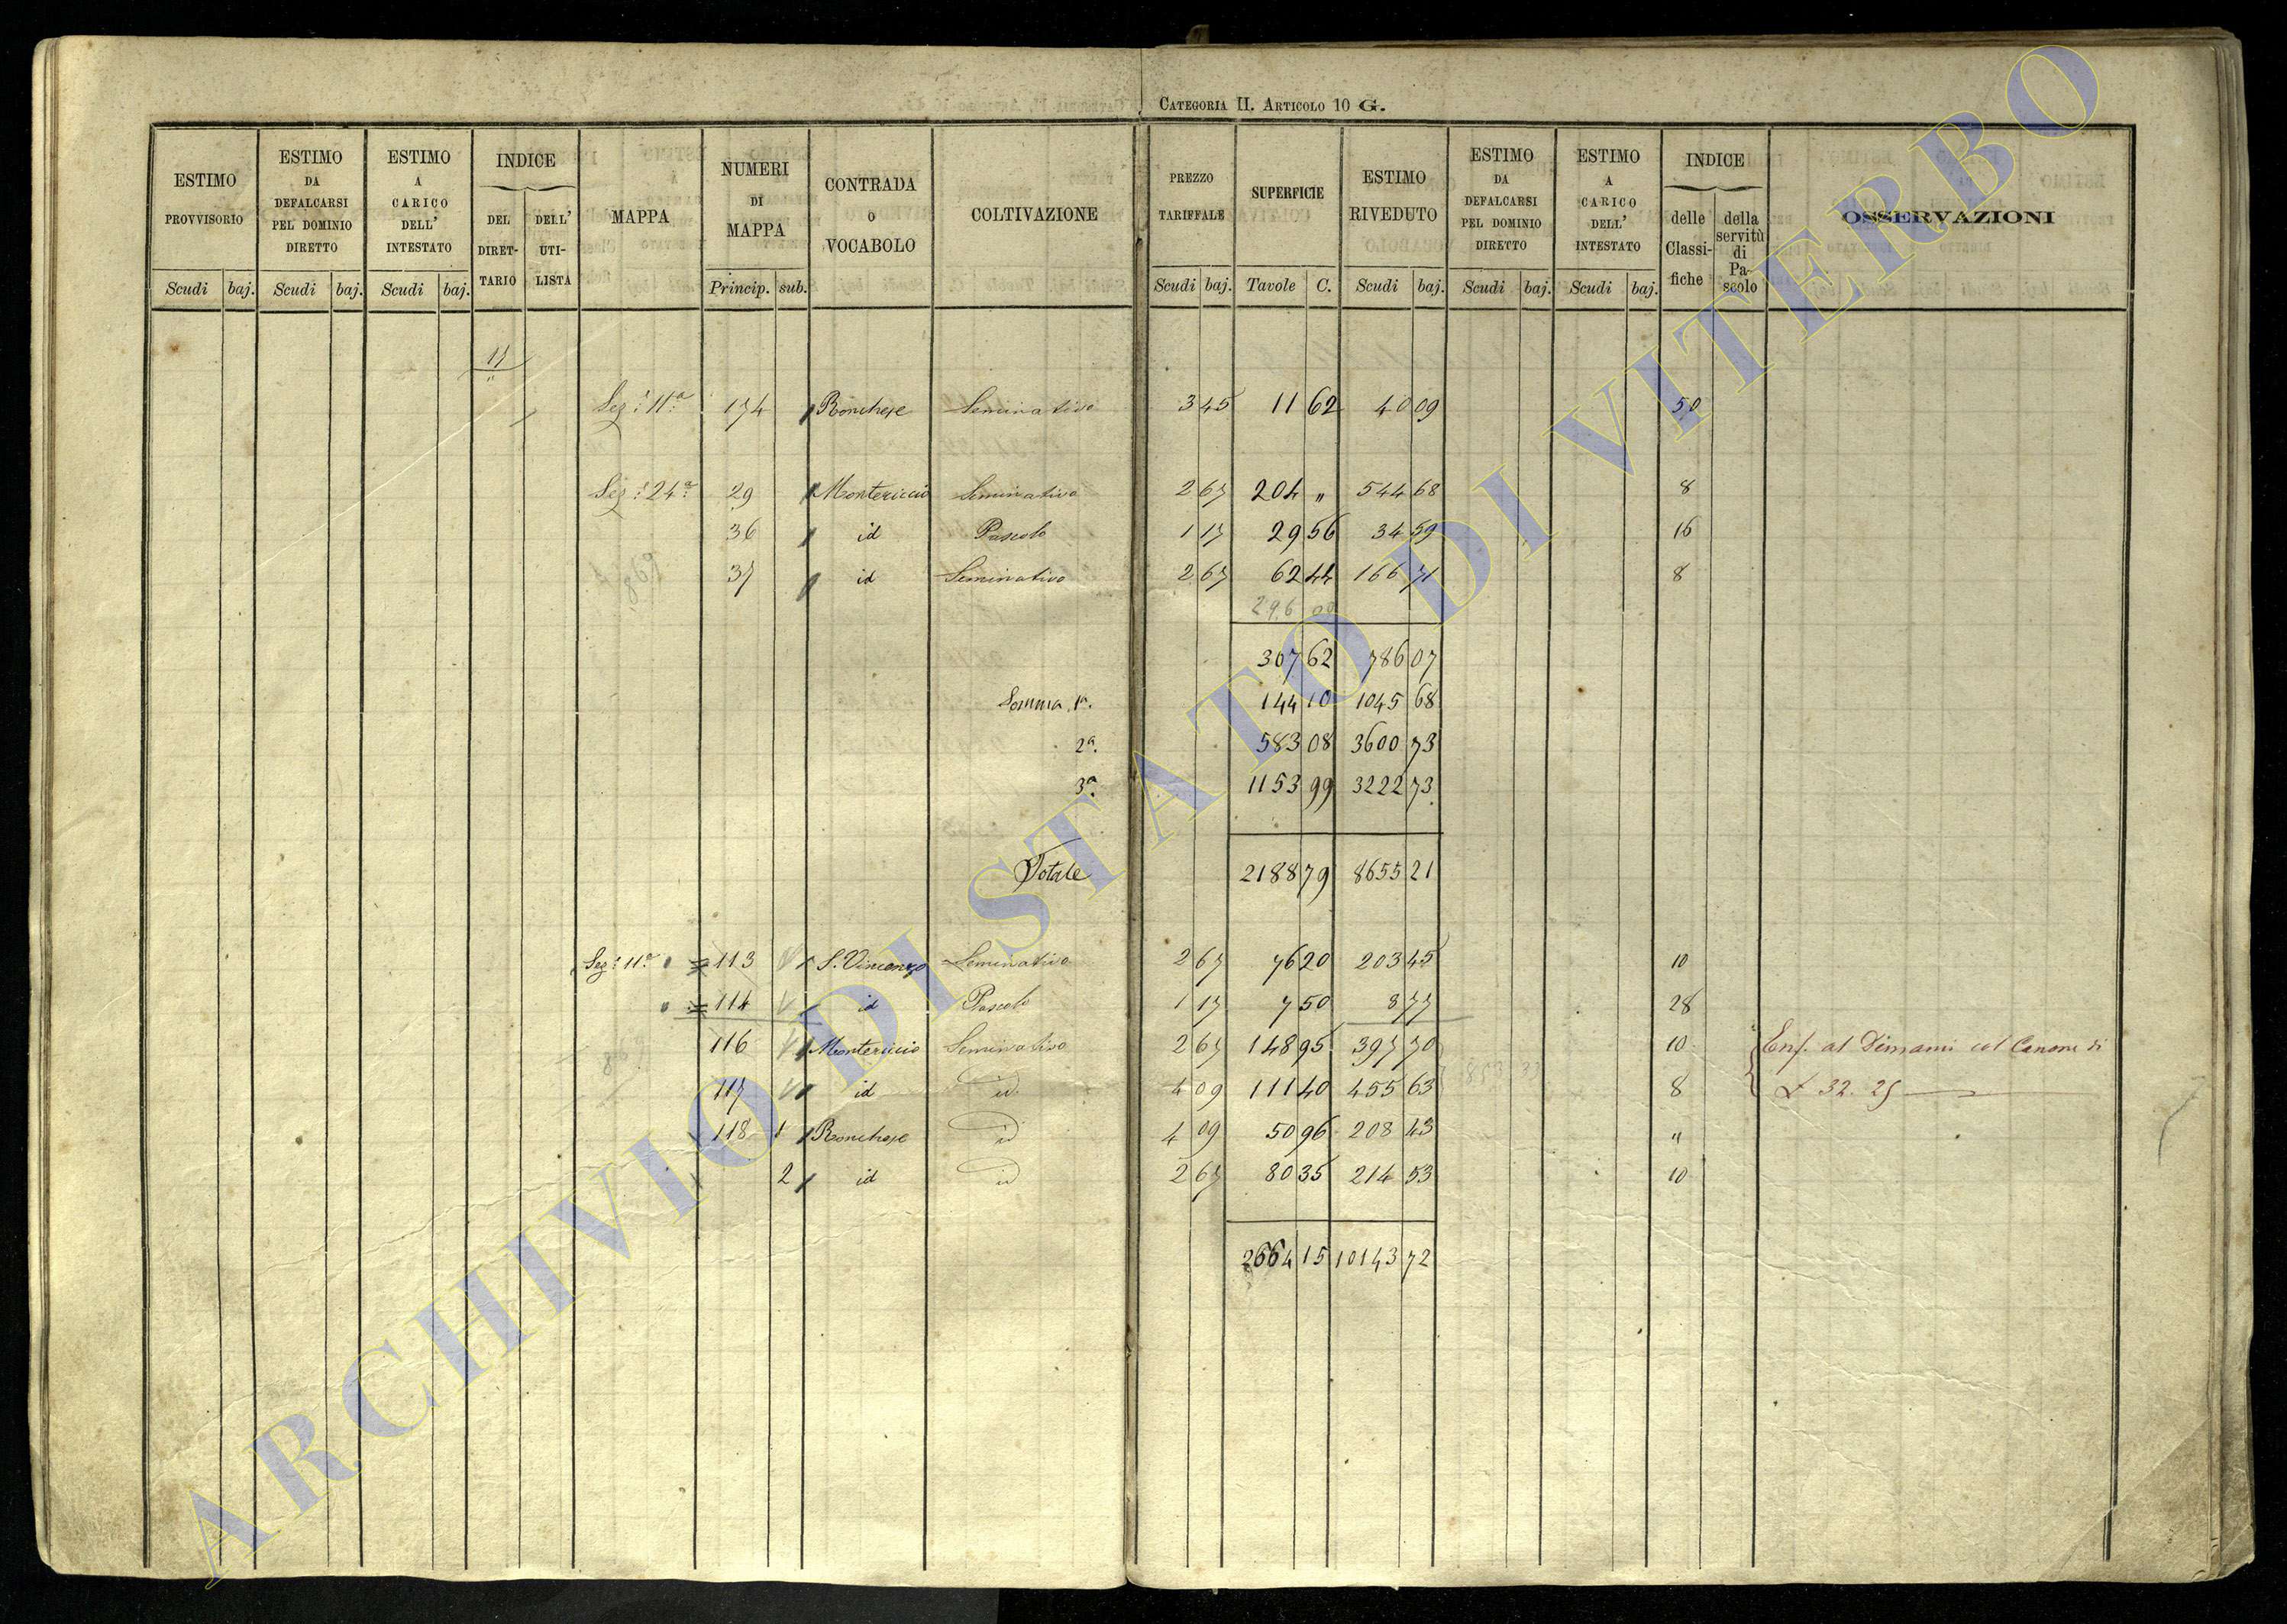 CATEGORIA II. ARTICOLO 10 G.
ESTIMO PROVVISORIO Scudi baj. ESTIMO DA DEFALCARSI PEL DOMINIO DIRETTO Scudi baj. ESTIMO A CARICO DELL' INTESTATO Scudi baj. INDICE DEL DIRET-TARIO DELL' UTI-LISTA MAPPA NUMERI DI MAPPA Princip. sub. CONTRADA O VOCABOLO COLTIVAZIONE PREZZO TARIFFALE Scudi baj. SUPERFICIE Tavole C. ESTIMO RIVEDUTO Scudi baj. ESTIMO DA DEFALCARSI PEL DOMINIO DIRETTO Scudi baj. ESTIMO A CARICO DELL' INTESTATO Scudi baj. INDICE delle Classi-fiche della servitù di Pa-scolo OSSERVAZIONI
17
Sez: 11ª 174 Ronchese Seminativo 3 45 11 62 40 09 50
Sez: 24ª 29 Montericcio Seminativo 2 67 204 " 544 68 8
36 id Pascolo 1 17 29 56 34 59 16
37 id Seminativo 2 67 62 44 166 71 8
296 00
307 62 786 07
Somma 1ª. 144 10 1045 68
2ª. 583 08 3600 73
3ª. 1153 99 3222 73
Totale 2188 79 8655 21
Sez: 11ª 113 S. Vincenzo Seminativo 2 67 76 20 203 45 10
114 id Pascolo 1 17 7 50 8 77 28
116 Montericcio Seminativo 2 67 148 95 397 70 10 Enf. al Dimani col Canone di
117 id id 4 09 111 40 455 63 8 £ 32. 25
118 1 Ronchese id 4 09 50 96 208 43 "
2 id id 2 67 80 35 214 53 10
2664 15 10143 72
ARCHIVIO DI STATO DI VITERBO